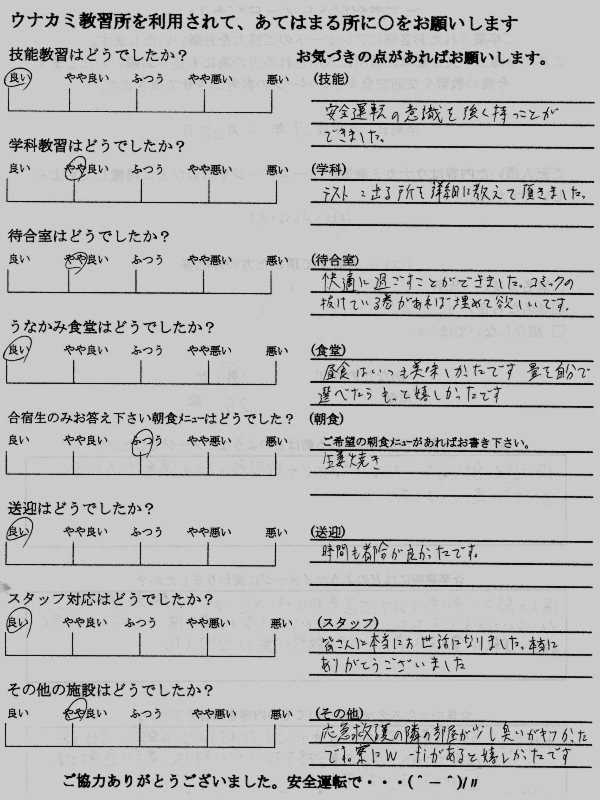 ウナカミ教習所を利用されて、あてはまる所に〇をお願いします
技能教習はどうでしたか?
お気づきの点があればお願いします。
良い やや良い ふつう やや悪い 悪い
(技能)
安全運転の意識を強く持つことが
できました。
学科教習はどうでしたか?
良い やや良い ふつう やや悪い 悪い
(学科)
テストに出る所を詳細に教えて頂きました。
待合室はどうでしたか?
良い やや良い ふつう やや悪い 悪い
(待合室)
快適に過ごすことができました。コミックの
抜けている巻があれば埋めて欲しいです。
うなかみ食堂はどうでしたか?
良い やや良い ふつう やや悪い 悪い
(食堂)
昼食はいつも美味しかったです 量を自分で
選べたらもっと嬉しかったです
合宿生のみお答え下さい朝食メニューはどうでしたか?
(朝食)
良い やや良い ふつう やや悪い 悪い
ご希望の朝食メニューがあればお書き下さい。
生姜焼き
送迎はどうでしたか?
良い やや良い ふつう やや悪い 悪い
(送迎)
時間も都合が良かったです。
スタッフ対応はどうでしたか?
良い やや良い ふつう やや悪い 悪い
(スタッフ)
皆さんに本当にお世話になりました。本当に
ありがとうございました
その他の施設はどうでしたか?
良い やや良い ふつう やや悪い 悪い
(その他)
応急救護の隣の部屋が少し臭いがキツかった
です。寮にWi-fiがあると嬉しかったです
ご協力ありがとうございました。安全運転で・・・(^-^)/〃